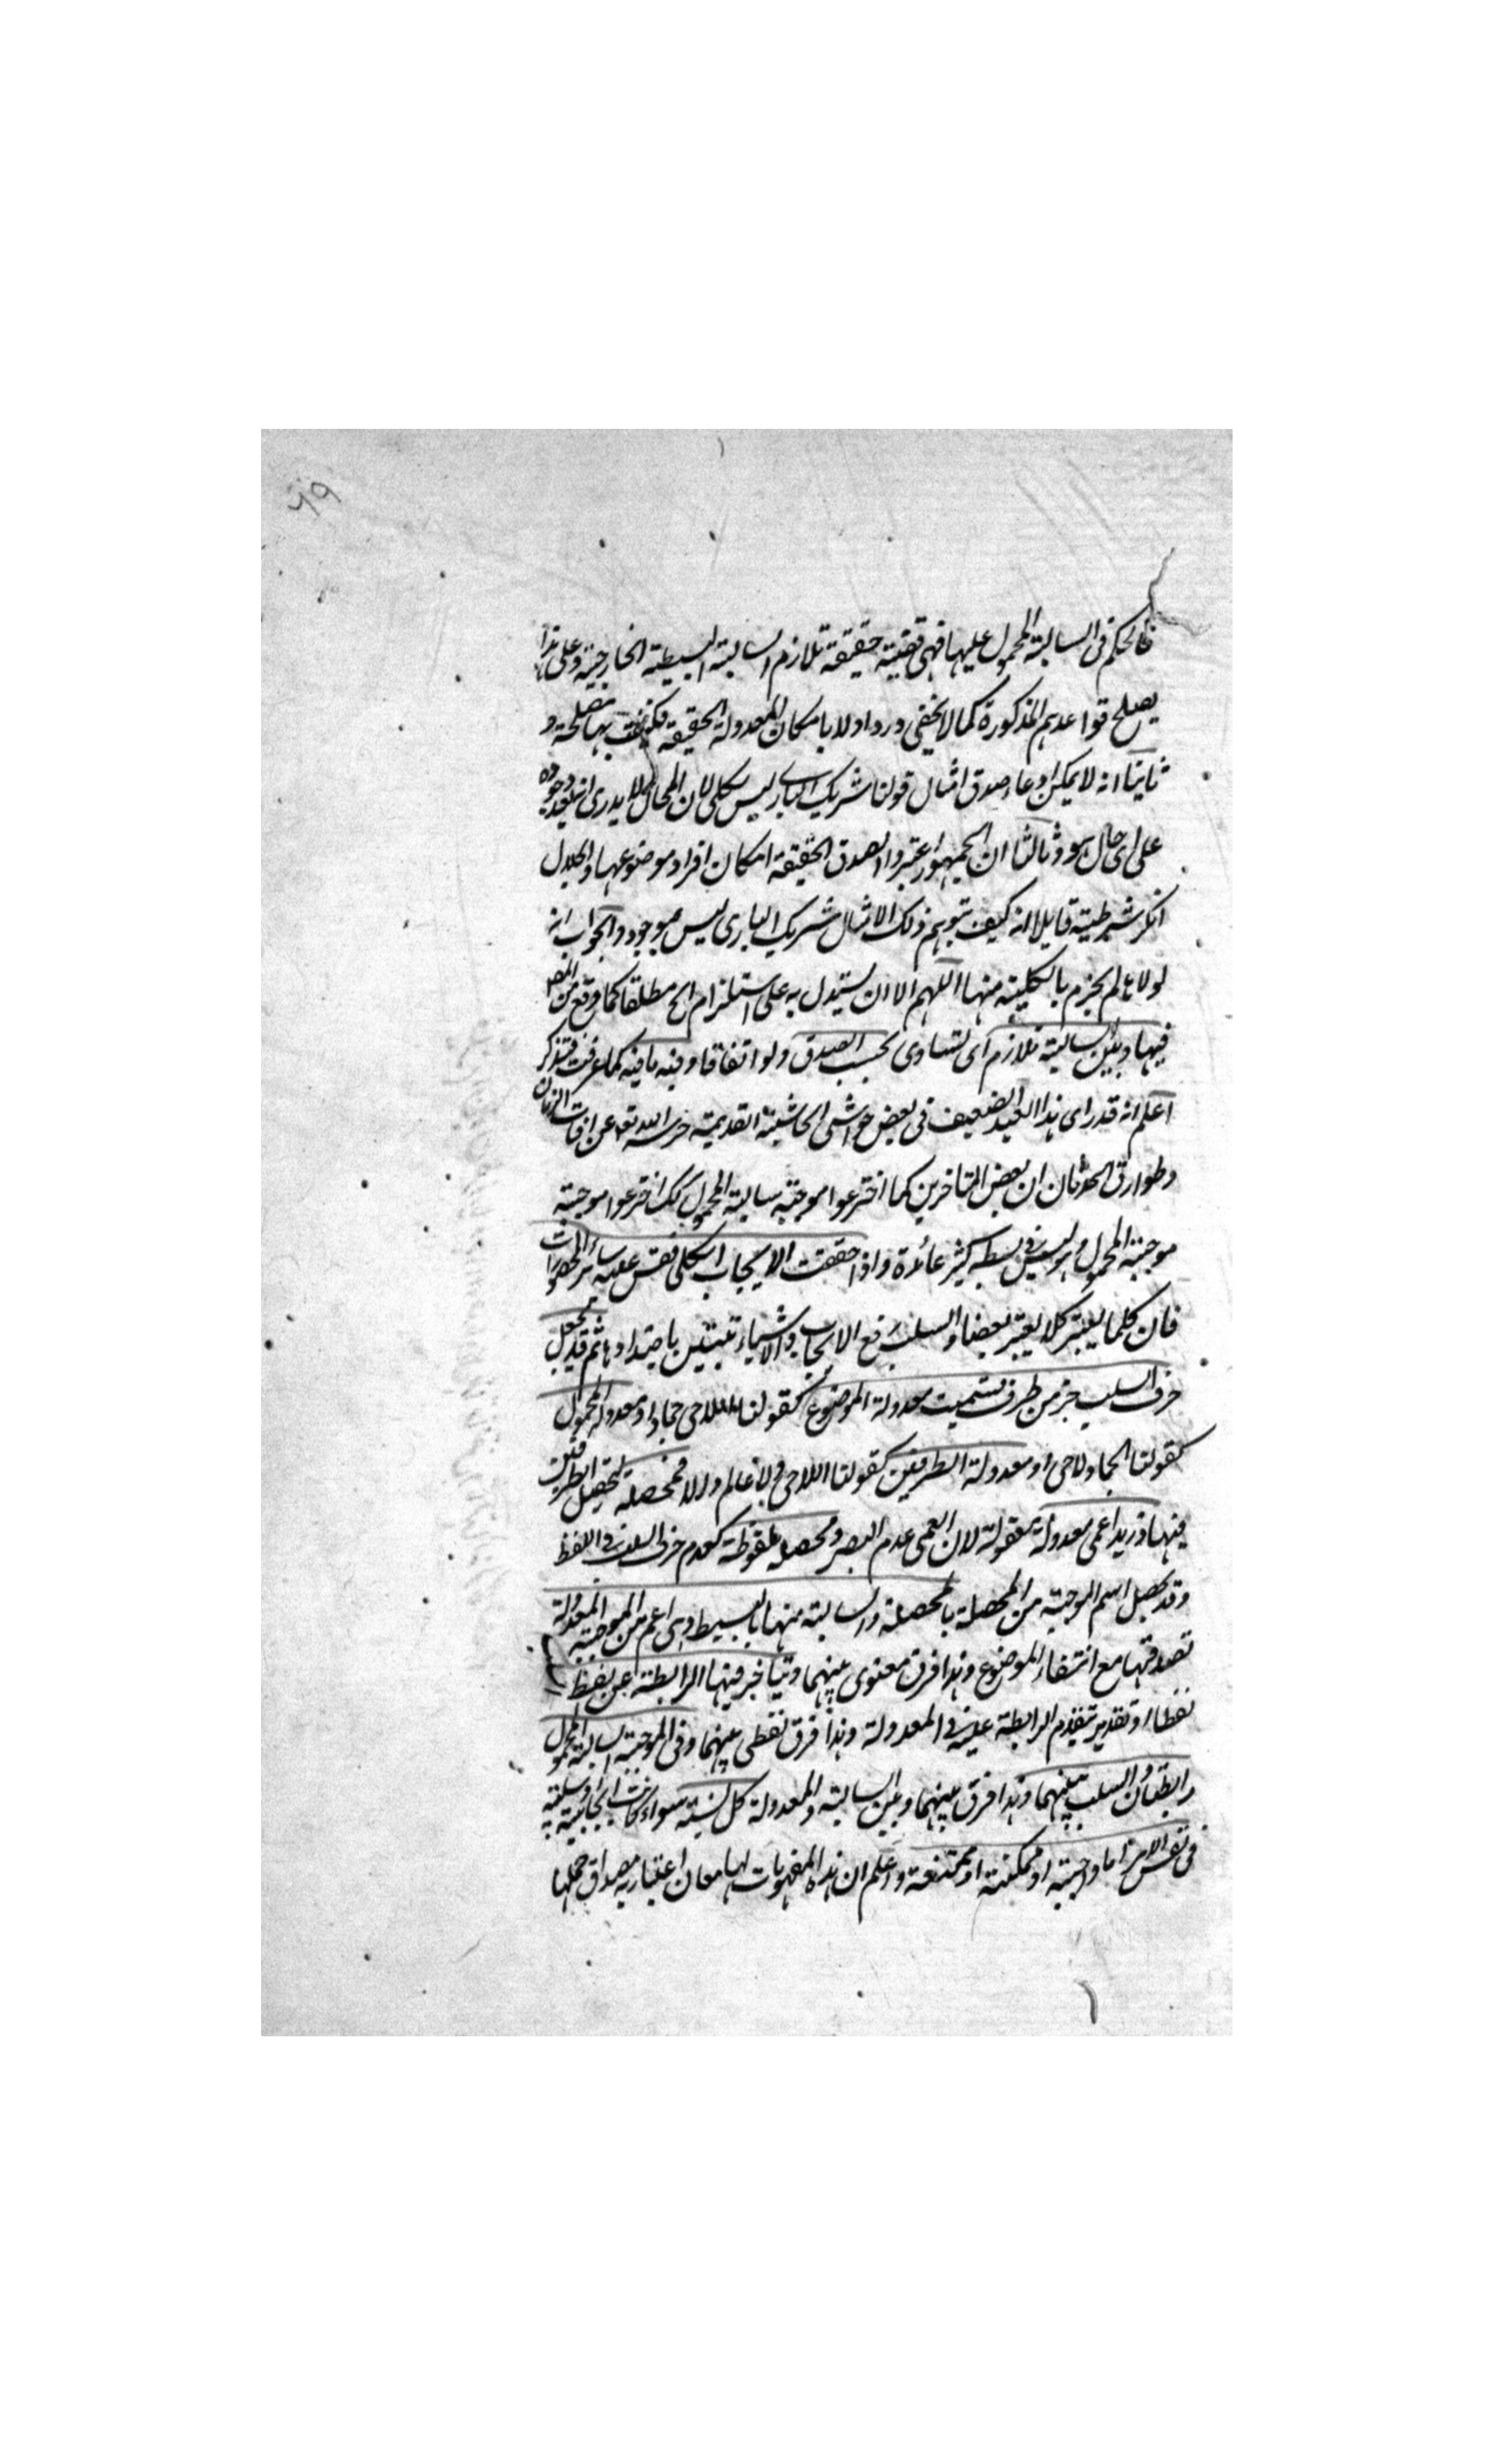 ٦٩
فالحكم في السالبة المحمول عليها فهي قضية حقيقة تلازم السالبة البسيطة الخارجية وعلى هذا
يصلح قواعدهم المذكورة كما لا يخفى ورد اولا بامكان المعدولة الحقيقة بها مصلحة و
ثانيا انه لا يمكن ادعاء صدق امثال قولنا شريك الباري ليس بكلي لان المحال لا يدرى انه بعد وجوده
على اى حال هو وثالثا ان الجمهور اعتبروا لصدق الحقيقة امكان افراد موضوعها والجلال
انكر شرطيته قايلا انه كيف يتوهم ذلك الامثال شريك الباري ليس بموجود والجواب انه
لولاها لم يجزم بالكلية منها اللهم الا ان يستدل به على استلزام المح مطلقا كما وقع من المص
فيها وبين السالبة تلازم اى تساوى بحسب الصدق ولو اتفاقا وفيه ما فيه كما عرفت فتذكر
اعلم انه قد راى هذا العبد الضعيف في بعض حواشى الحاشية القديمة حرسه الله تعالى عن افات الزمان
وطوارق الحدثان ان بعض المتاخرين كما اخترعوا موجبة سالبة المحمول كك اخترعوا موجبة
موجبة المحمول وليس في بسطه كثير عائدة واذا حققت الايجاب الكلى فقس عليه سائر المحصورات
فان كلما يعتبر كلا يعتبر بعضا والسلب رفع الايجاب والاشياء تتبين باضدادها ثم قد يجعل
حرف السلب جزء من طرف فسميت معدولة الموضوع كقولنا اللاحى جماد او معدولة المحمول
كقولنا الجماد لاحى او معدولة الطرفين كقولنا اللاحى لا عالم والا فمحصلة لتحصيل الطرفين
فيها وزيد اعمى معدولة معقولة لان العمى عدم البصر ومحصلة ملفوظة لعدم حرف السلب في اللفظ
وقد يخص اسم الموجبة من المحصلة بالمحصلة والسالبة منها بالبسيطة وهى اعم من الموجبة المعدولة
لصدقها مع انتفاء الموضوع وهذا فرق معنوى بينهما ويتاخر فيها الرابطة عن لفظ
لفظا او تقديرا وتقدم الرابطة عليه في المعدولة وهذا فرق لفظى بينهما وفى الموجبة السالبة المحمول
رابطتان والسلب بينهما وهذا فرق بينهما وبين السالبة والمعدولة كل نسبة سواء كانت ايجابية او سلبية
في نفس الامر اما واجبة او ممكنة او ممتنعة واعلم ان هذه المفهومات لها معان اعتبارية مصداق حملها